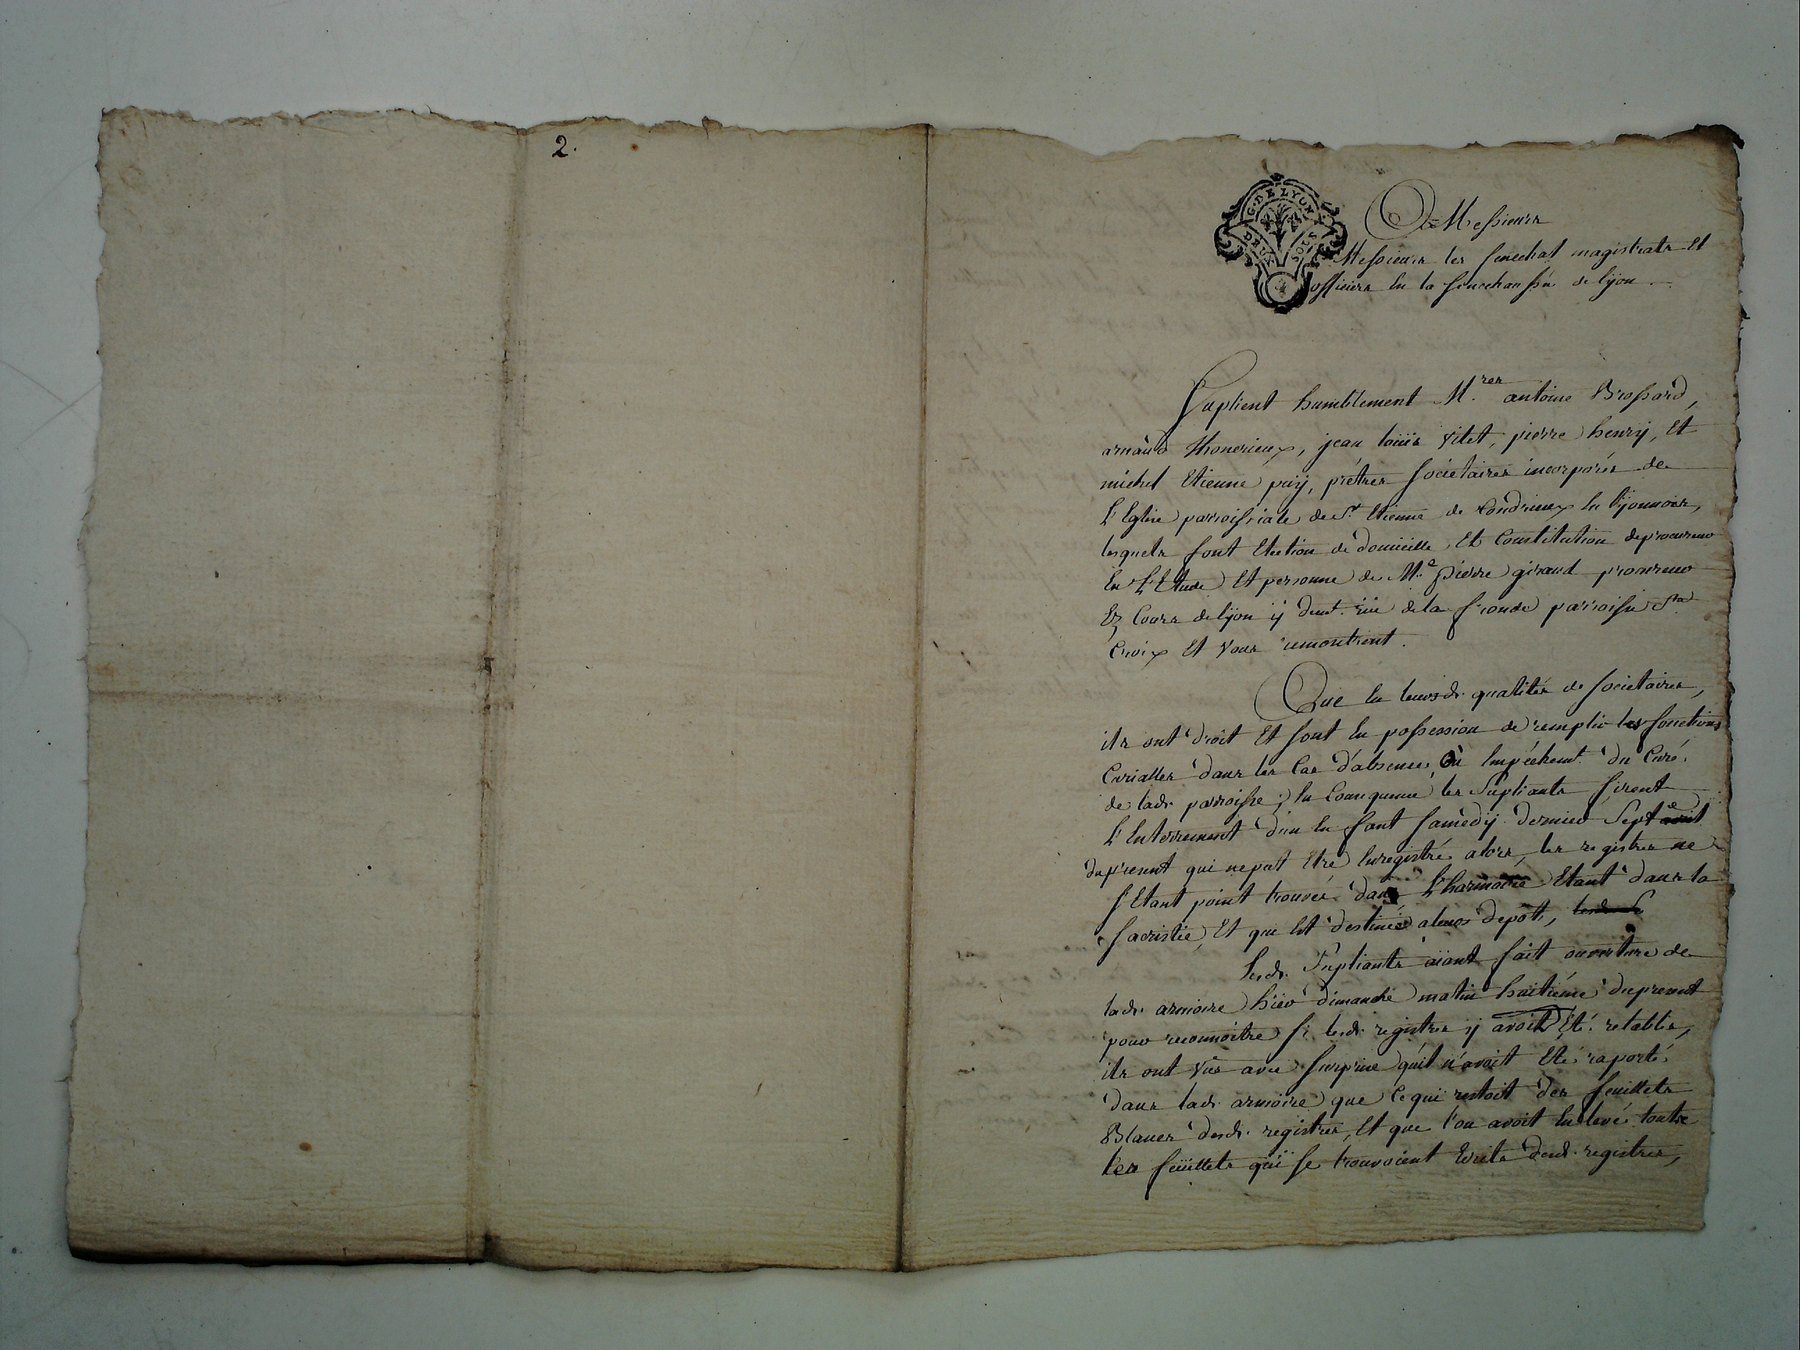 2.
G. DE LYON
DEUX SOLS
A Messieurs
Messieurs les senechal magistrats Et
officiers En la senechaussée de lÿon
Suplient humblement M.res antoine Brossard,
arnaud Thonerieux, jean loüis Vitet, pierre henrÿ, Et
michel Etienne puÿ, prêtres societaires incorporés de
L'Eglise parroissiale de St Etienne de Condrieux En lÿonnois,
lesquels font Election de domicille, Et Constitution de procureur
En L'Etude Et personne de M.e pierre giraud procureur
Ez Cours de lÿon ÿ demt. rüe de la fronde parroisse Ste
Croix Et Vous remontrent.
Que En leursd. qualités de societaires,
ils ont droit Et sont En possession de remplir les fonctions
Curialles dans les Cas d'absence, Ou Empéchemt. du Curé
de lad. parroisse; En Consequence les Supliants firent
L'Enterrement d'un Enfant samedÿ dernier Sept.e
du present qui ne put Etre Enregistré alors, les registres ne
s'Etant point trouvés dans L'harmoire Etant dans la
sacristie, Et qui Est destinée a leurs depôts,
Lesd. Supliants aïant fait ouverture de
lad. armoire hïer dimanche matin huitiéme du present
pour reconnoitre si lesd. registres ÿ avoit Eté retablis,
ils ont Vüs avec surprise qu'il n'avoit Eté raporté
dans lad. armoire que Ce qui restoit des feuillets
Blancs desd. registres, Et que l'on avoit Enlevé touts
les feüillets qui se trouvoient Ecrits desd. registres,